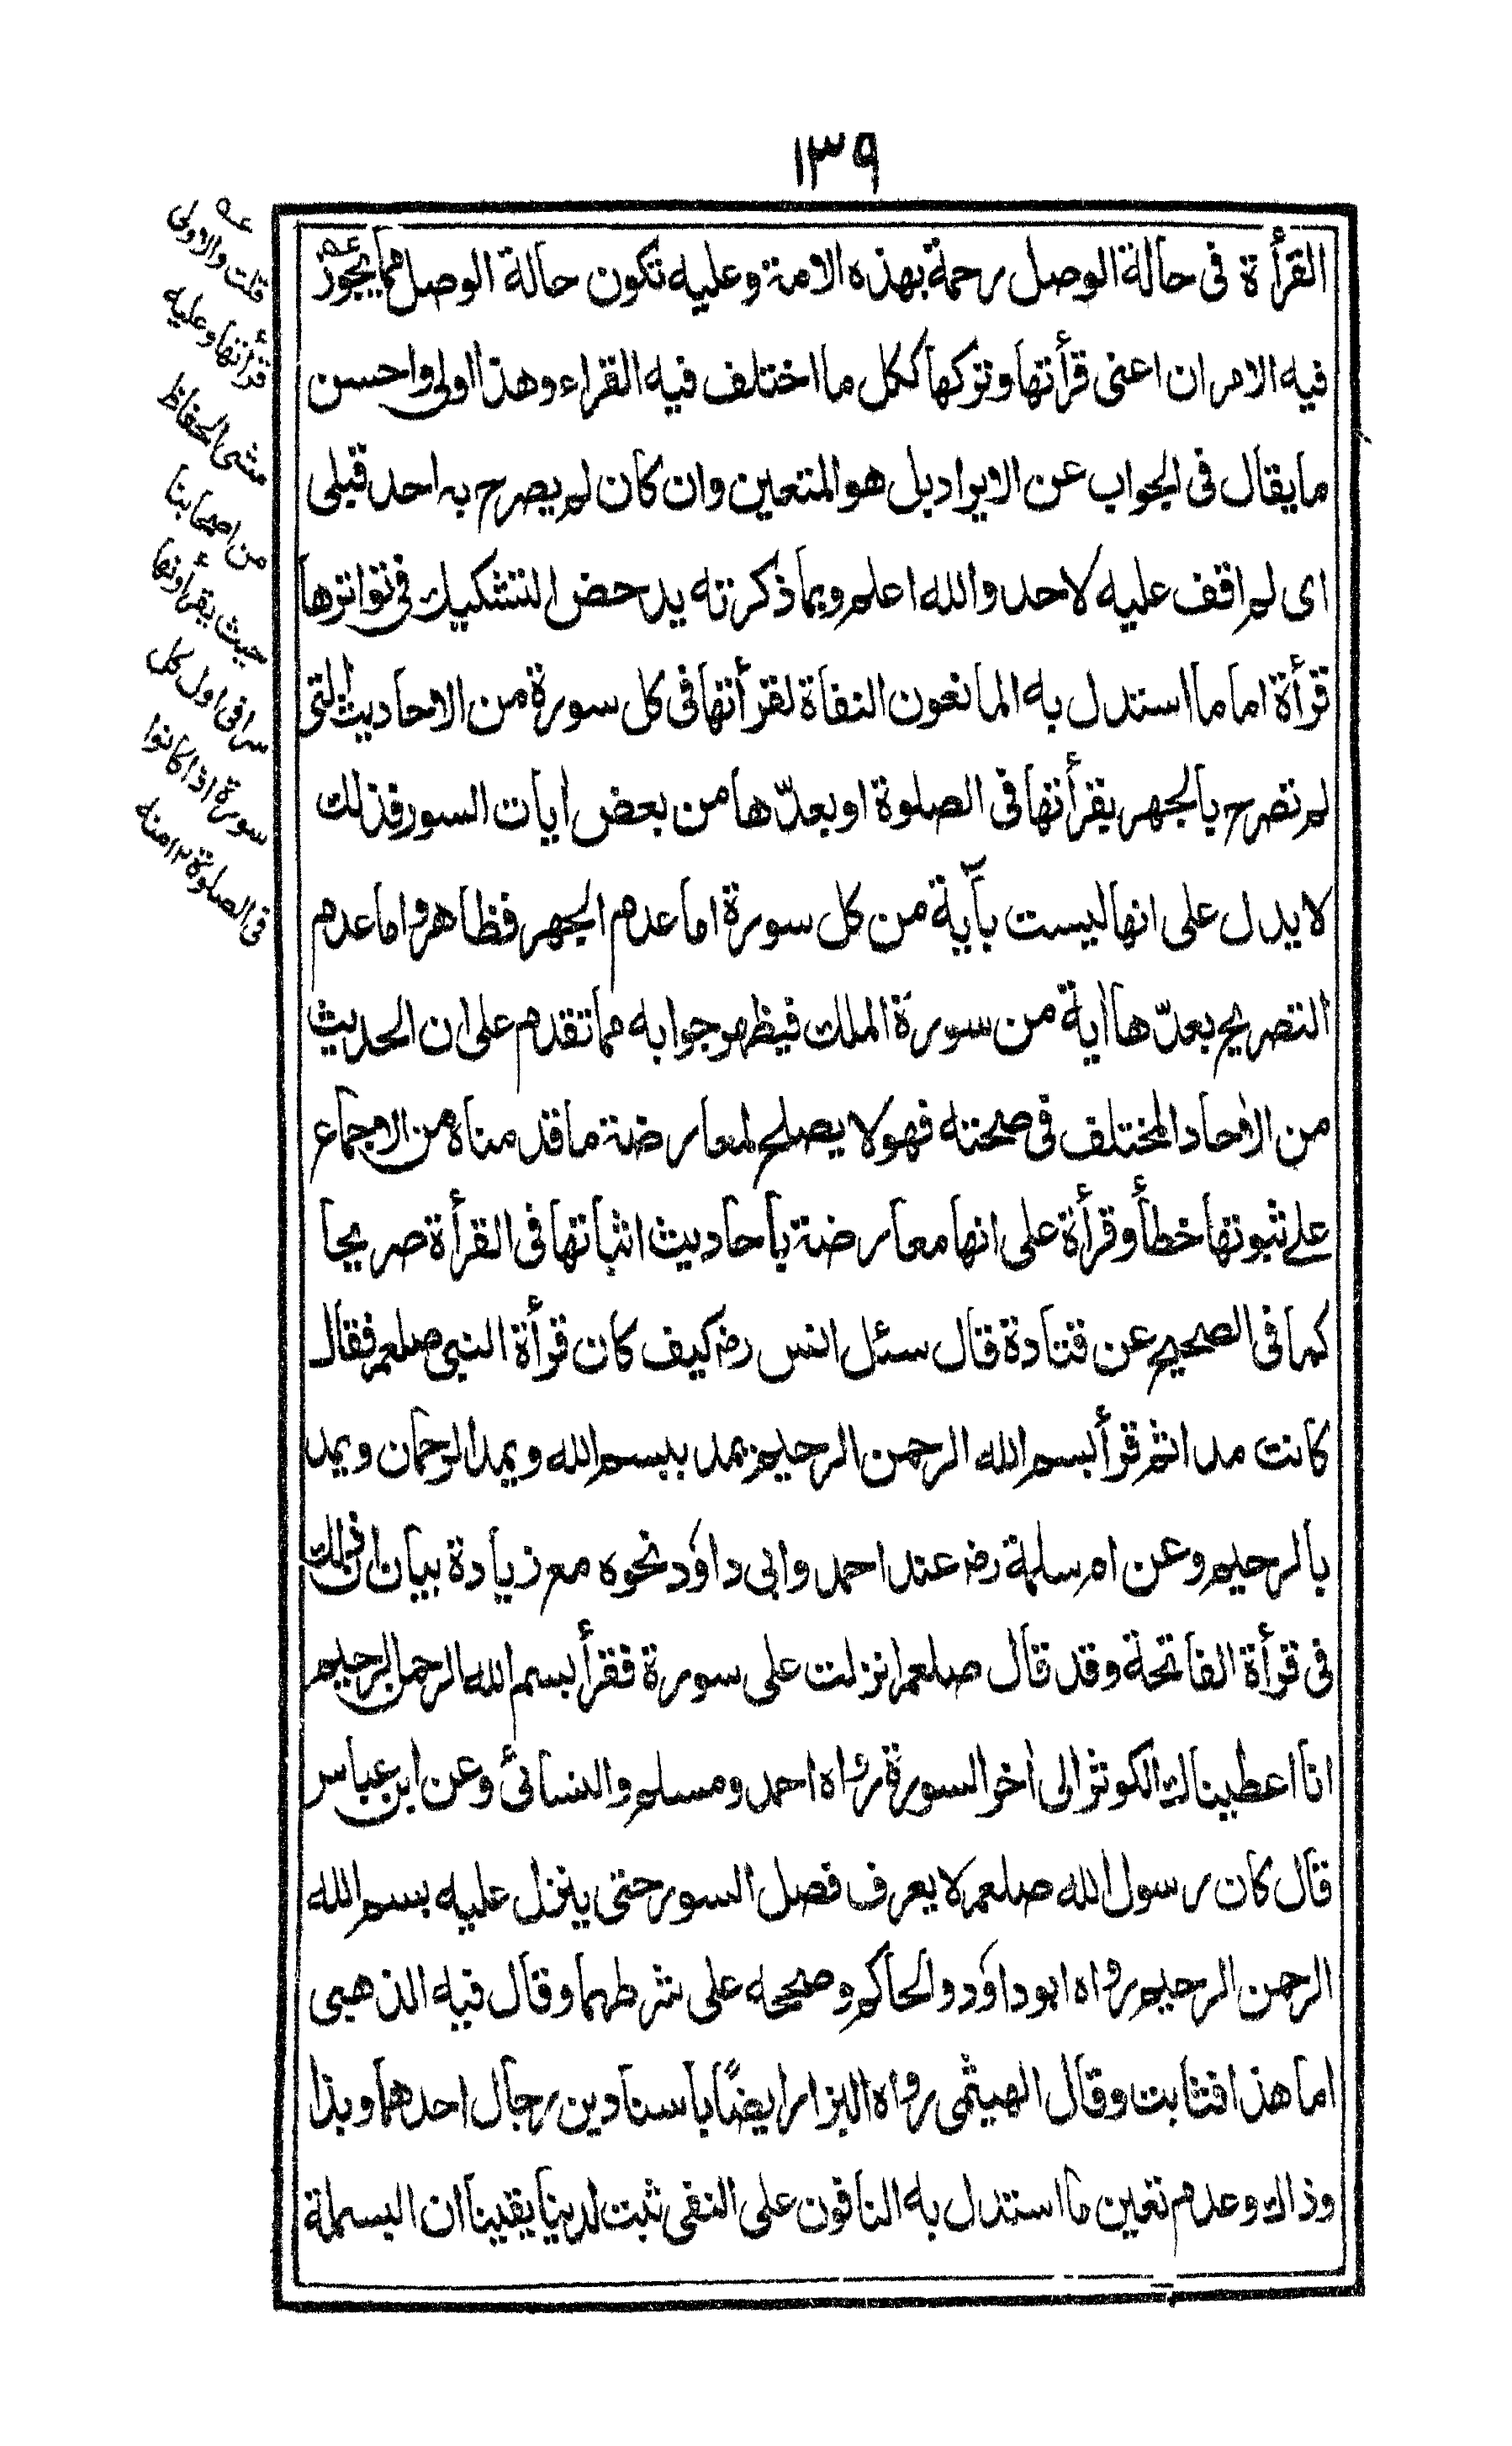 ١٣٩
القرأة فى حالة الوصل رحمة بهذه الامة وعليه تكون حالة الوصل مما يجوز عـه
فيه الامران اعنى قرأتها وتركها ككل ما اختلف فيه القراء وهذا اولى واحسن
ما يقال فى الجواب عن الايراد بل هو المتعين وان كان لم يصرح به احد قبلى
اى لم اقف عليه لاحد والله اعلم وبما ذكرته يدحض التشكيك فى تواترها
قرأة اما ما استدل به المانعون النفاة لقرأتها فى كل سورة من الاحاديث التى
لم تصرح بالجهر بقرأتها فى الصلوة او بعدّها من بعض أيات السور فذلك
لا يدل على انها ليست بآية من كل سورة اما عدم الجهر فظاهر واما عدم
التصريح بعدّها أية من سورة الملك فيظهر جوابه مما تقدم على ان الحديث
من الأحاد المختلف فى صحته فهو لا يصلح لمعارضة ما قدمناه من الاجماع
على ثبوتها خطأ وقرأة على انها معارضة بأحاديث اثباتها فى القرأة صريحا
كما فى الصحيح عن قتادة قال سئل انس رضـ كيف كان قرأة النبى صلعم فقال
كانت مدا ثم قرأ بسم الله الرحمن الرحيم يمد ببسم الله ويمد الرحمان ويمد
بالرحيم وعن ام سلمة رضـ عند احمد وابى داؤد نحوه مع زيادة بيان ان ذلك
فى قرأة الفاتحة وقد قال صلعم انزلت على سورة فقرأ بسم الله الرحمن الرحيم
انا اعطيناك الكوثر الى أخر السورة رواه احمد ومسلم والنسائى وعن ابن عباس
قال كان رسول الله صلعم لا يعرف فصل السور حتى ينزل عليه بسم الله
الرحمن الرحيم رواه ابو داؤد والحاكم وصححه على شرطهما وقال فيه الذهبى
اما هذا فثابت وقال الهيثمى رواه البزار ايضًا باسنادين رجال احدهما وبذا
وذاك وعدم تعين ما استدل به النافون على النفى ثبت لدينا يقينا ان البسملة
عـه
قلت والاولى
قرأتها وعليه
مشى الحفاظ
من اصحابنا
حيث يقرأونها
سرا فى اول كل
سورة اذا كانوا
فى الصلوة ١٢ منه